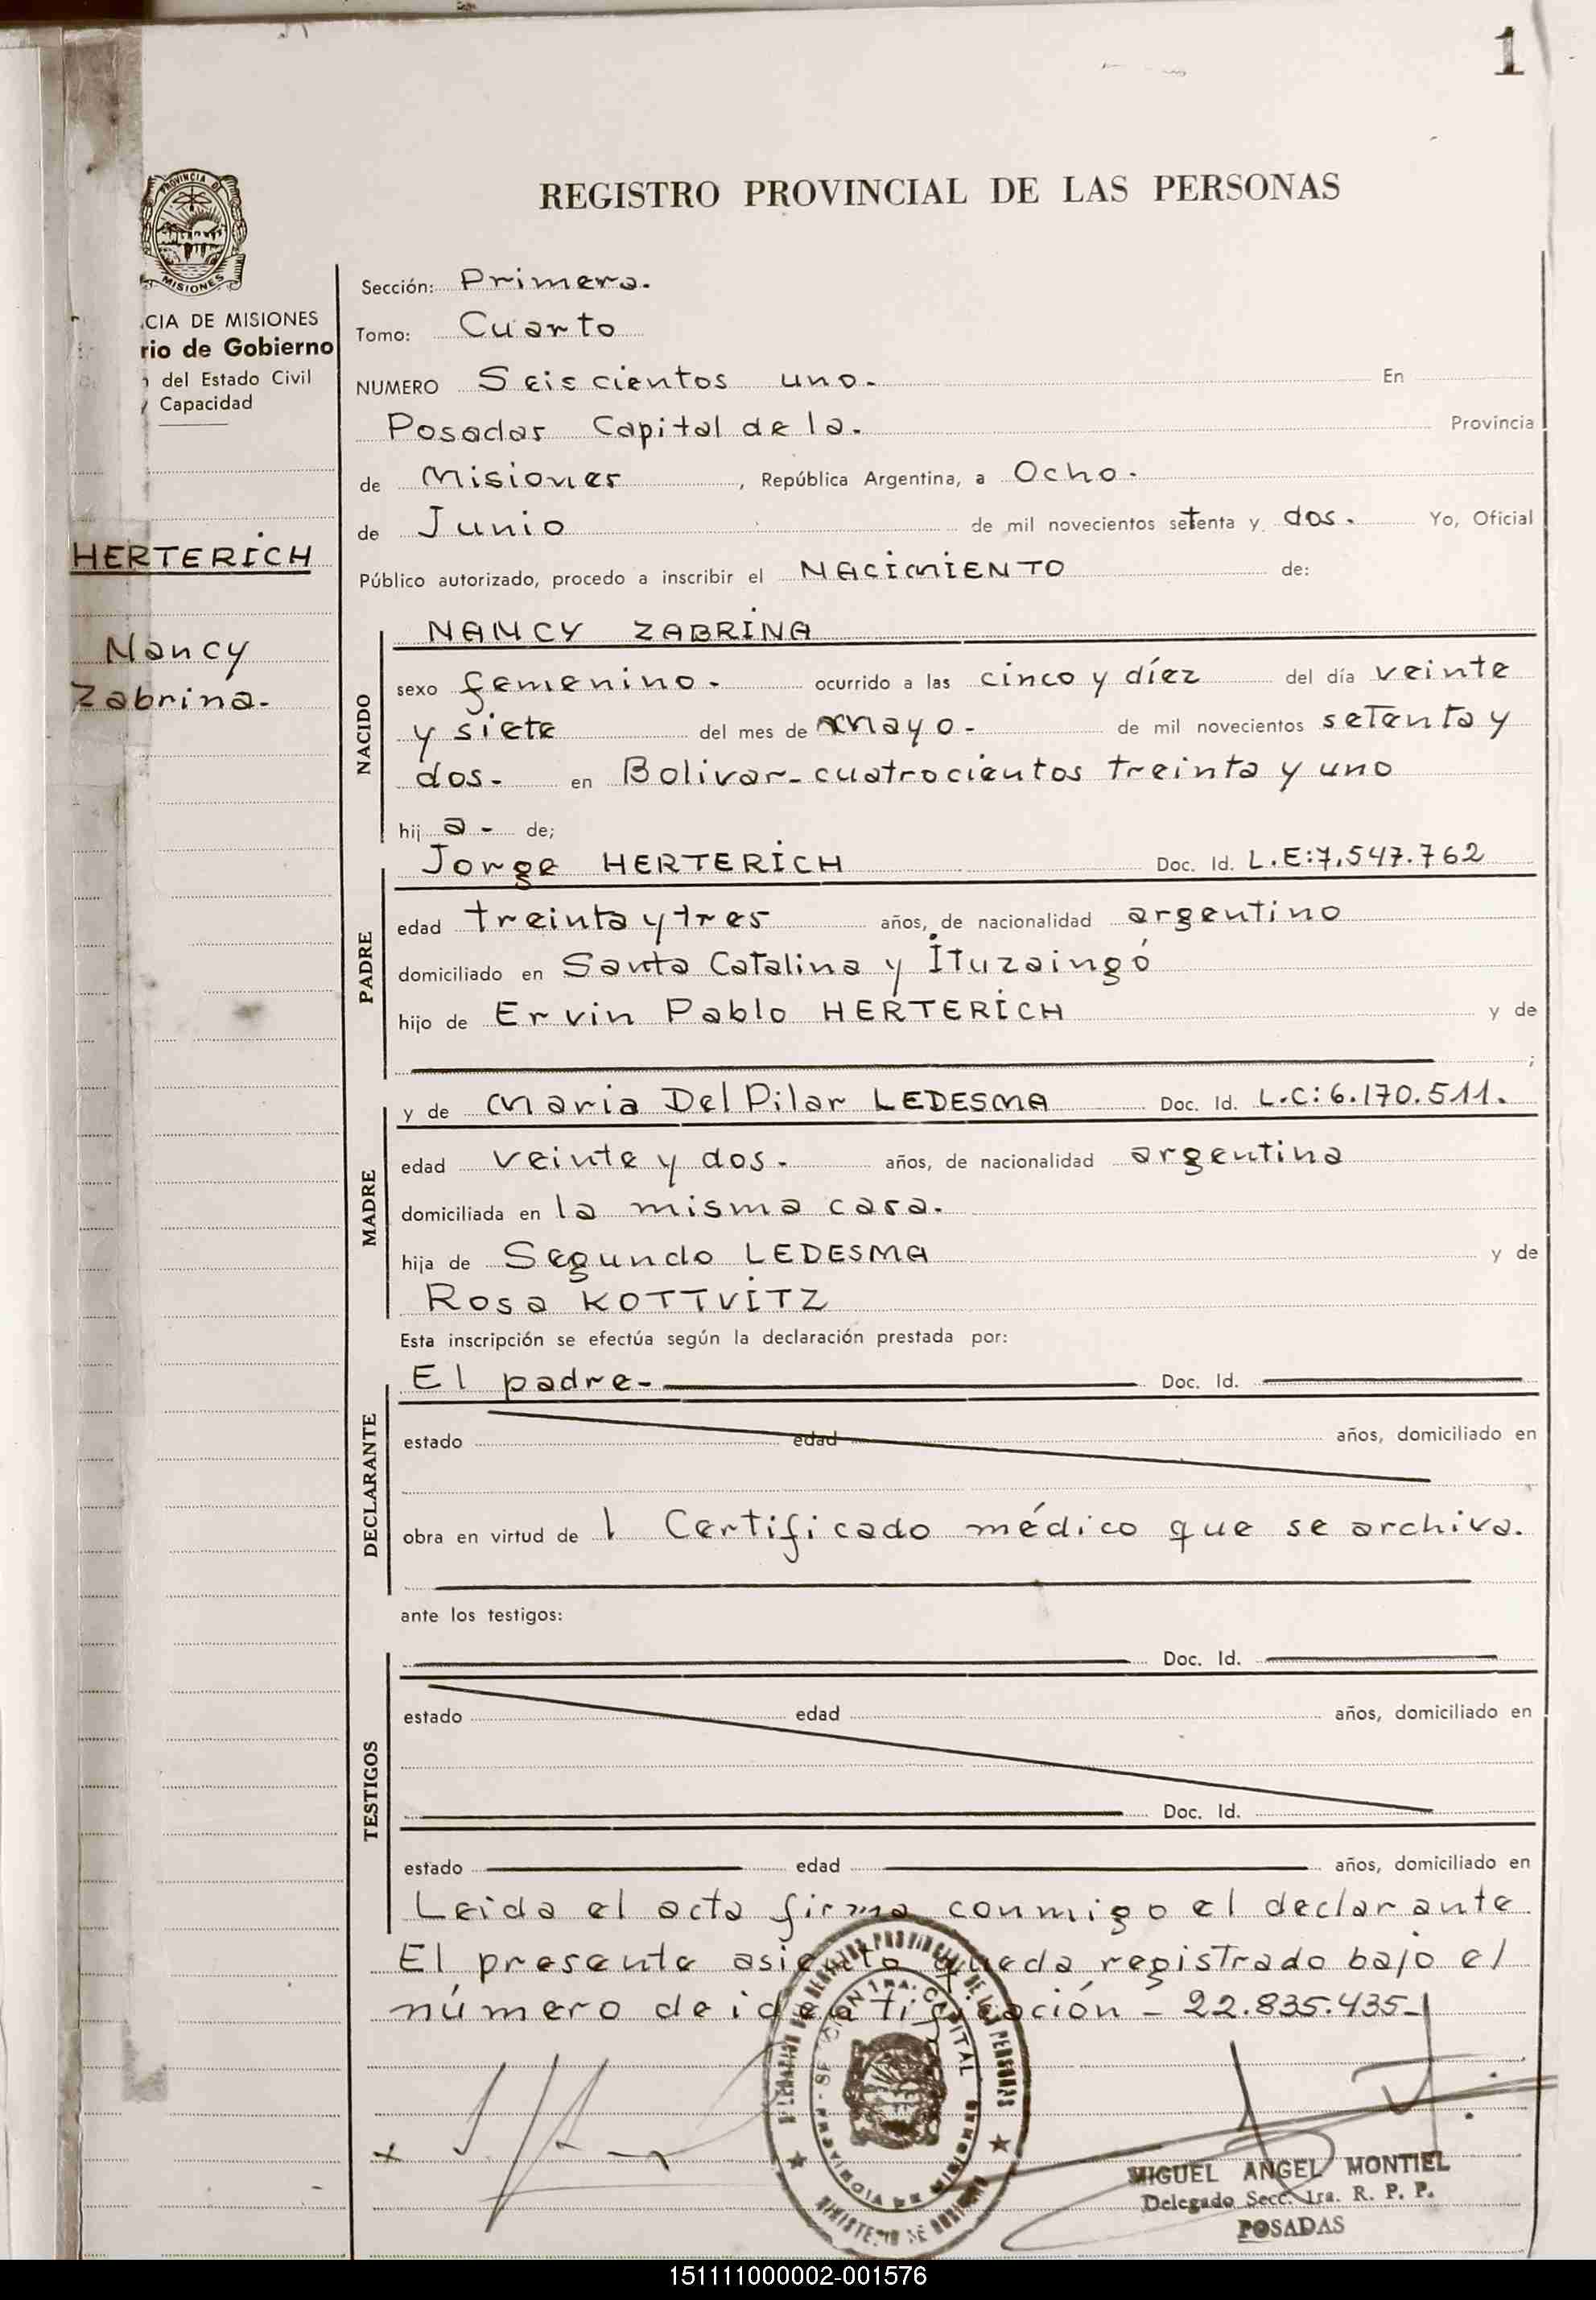 1
REGISTRO PROVINCIAL DE LAS PERSONAS
PROVINCIA DE
MISIONES
CIA DE MISIONES
rio de Gobierno
del Estado Civil
y Capacidad
HERTERICH
Nancy
Zabrina.-
Sección: Primera.
Tomo: Cuarto
NUMERO Seiscientos uno.- En
Posadas Capital de la. Provincia
de Misiones, República Argentina, a Ocho.
de Junio de mil novecientos setenta y dos. Yo, Oficial
Público autorizado, procedo a inscribir el NACIMIENTO de:
NACIDO
NANCY ZABRINA
sexo femenino.- ocurrido a las cinco y díez del día veinte
y siete del mes de mayo.- de mil novecientos setenta y
dos.- en Bolivar-cuatrocientos treinta y uno
hij a - de;
PADRE
Jorge HERTERICH Doc. Id. L.E:7.547.762
edad treinta y tres años, de nacionalidad argentino
domiciliado en Santa Catalina y Ituzaingó
hijo de Ervin Pablo HERTERICH y de
;
MADRE
y de Maria Del Pilar LEDESMA Doc. Id. L.C:6.170.511.
edad veinte y dos.- años, de nacionalidad argentina
domiciliada en la misma casa.
hija de Segundo LEDESMA y de
Rosa KOTTVITZ
Esta inscripción se efectúa según la declaración prestada por:
DECLARANTE
El padre- Doc. Id.
estado edad años, domiciliado en
obra en virtud de 1 Certificado médico que se archiva.
ante los testigos:
TESTIGOS
Doc. Id.
estado edad años, domiciliado en
Doc. Id.
estado edad años, domiciliado en
Leida el acta firma conmigo el declarante
El presente asiento queda registrado bajo el
número de identificación - 22.835.435-
MIGUEL ANGEL MONTIEL
Delegado Secc. 1ra. R. P. P.
POSADAS
151111000002-001576